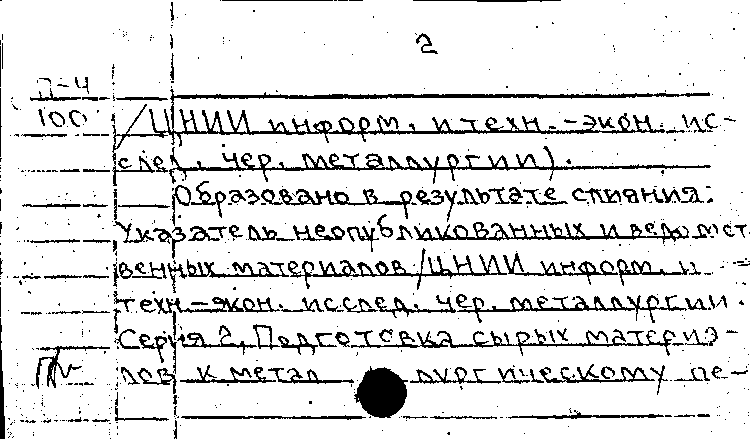 2
П-4
100 /ЦНИИ информ. и техн.-экон. ис-
след. чер. металлургии).
Образовано в результате слияния:
Указатель неопубликованных и ведомст
венных материалов/ЦНИИ информ. и
техн.-экон. исслед. чер. металлургии.
Серия 2, Подготовка сырых материа-
лов к метал лургическому пе-